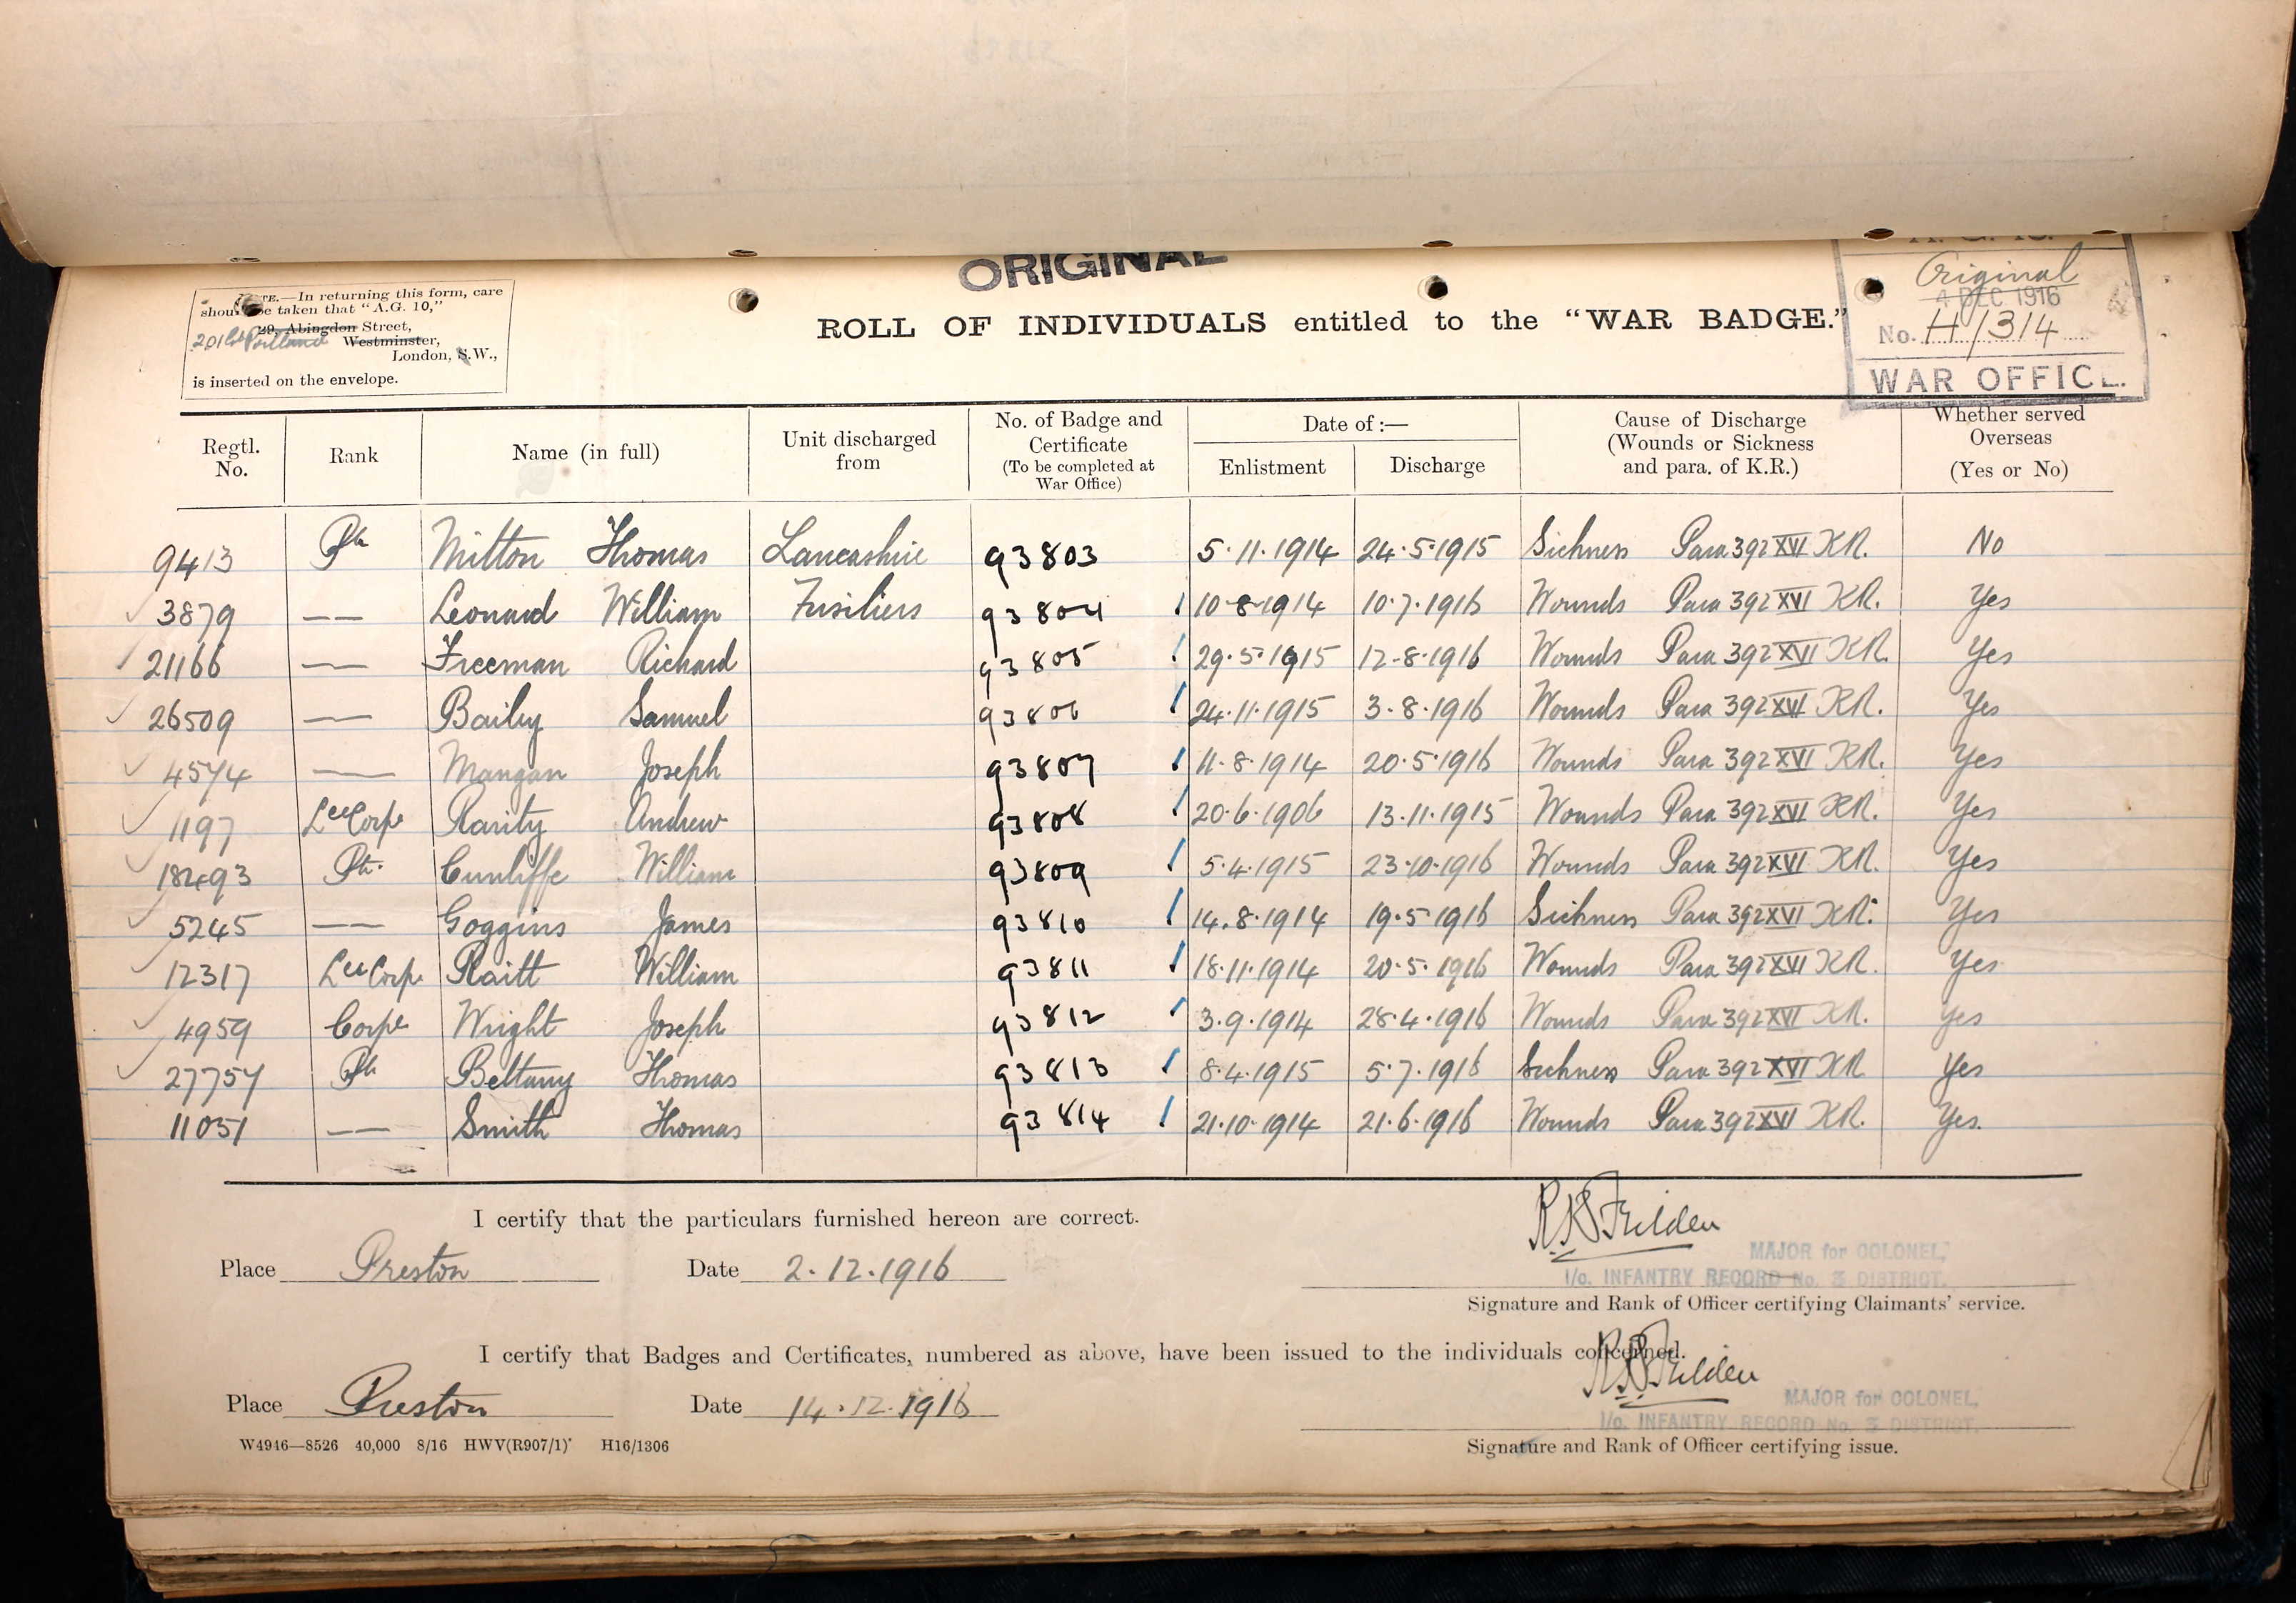 ORIGINAL
NOTE.—In returning this form, care
should be taken that "A.G. 10,"
29, Abingdon Street,
Westminster,
London, S.W.,
is inserted on the envelope.
ROLL OF INDIVIDUALS entitled to the "WAR BADGE."
Original
4 DEC 1916
No. H/314
WAR OFFICE.
Regtl. No. Rank Name (in full) Unit discharged from No. of Badge and Certificate (To be completed at War Office) Date of :— Enlistment Discharge Cause of Discharge (Wounds or Sickness and para. of K.R.) Whether served Overseas (Yes or No)
9413 Pte Mitton Thomas Lancashire 93803 5.11.1914 24.5.1915 Sickness Para 392 XVI KR. No
3879 —— Leonard William Fusiliers 93804 10.8.1914 10.7.1916 Wounds Para 392 XVI KR. Yes
21166 —— Freeman Richard 93805 29.5.1915 12.8.1916 Wounds Para 392 XVI KR. Yes
26509 —— Bailey Samuel 93806 24.11.1915 3.8.1916 Wounds Para 392 XVI KR. Yes
4574 —— Mangan Joseph 93807 11.8.1914 20.5.1916 Wounds Para 392 XVI KR. Yes
1197 Lce Corpl Rarity Andrew 93808 20.6.1906 13.11.1915 Wounds Para 392 XVI KR. Yes
18493 Pte. Cunliffe William 93809 5.4.1915 23.10.1916 Wounds Para 392 XVI KR. Yes
5245 —— Goggins James 93810 14.8.1914 19.5.1916 Sickness Para 392 XVI KR. Yes
12317 Lce Corpl Raitt William 93811 18.11.1914 20.5.1916 Wounds Para 392 XVI KR. Yes
4959 Corpl Wright Joseph 93812 3.9.1914 28.4.1916 Wounds Para 392 XVI KR. Yes
27757 Pte Beltany Thomas 93813 8.4.1915 5.7.1916 Sickness Para 392 XVI KR Yes
11051 —— Smith Thomas 93814 21.10.1914 21.6.1916 Wounds Para 392 XVI KR. Yes.
I certify that the particulars furnished hereon are correct.
Place Preston Date 2.12.1916
MAJOR for COLONEL,
I/c. INFANTRY RECORD No. 3 DISTRICT.
Signature and Rank of Officer certifying Claimants' service.
I certify that Badges and Certificates, numbered as above, have been issued to the individuals concerned.
Place Preston Date 14.12.1916
MAJOR for COLONEL,
I/c. INFANTRY RECORD No. 3 DISTRICT.
Signature and Rank of Officer certifying issue.
W4946—8526 40,000 8/16 HWV(R907/1) H16/1306